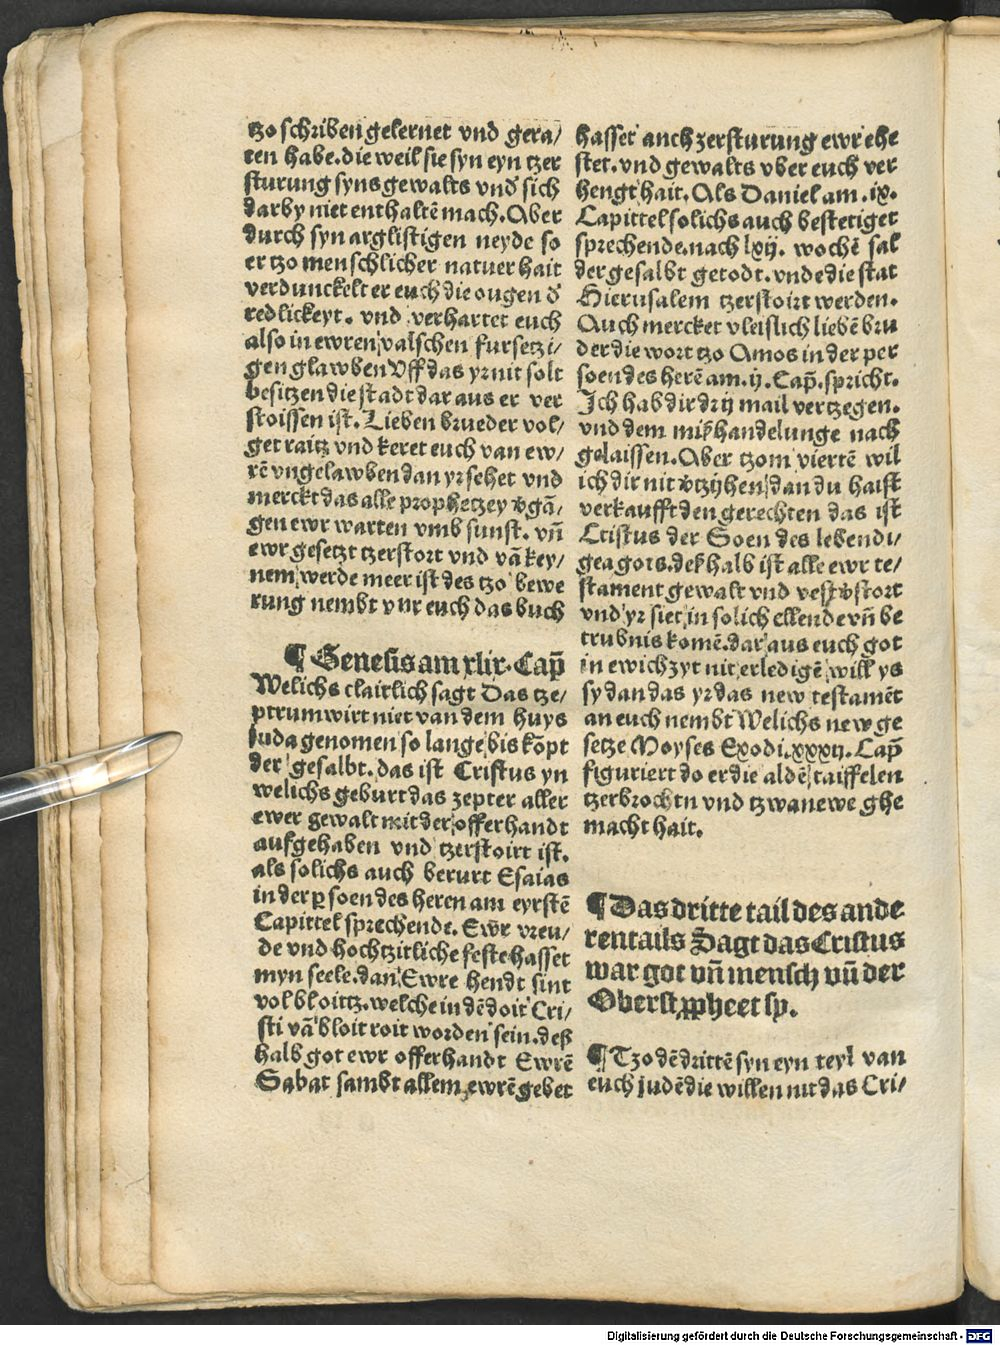 tzo schriben gelernet vnd gera/
ten habe. die weil sie syn eyn tzer
sturung syns gewalts vnd sich
darby niet enthaltē mach. Aber
durch syn arglistigen neyde so
er tzo menschlicher natuer hait
verdunckelt er euch die ougen d̕
redlickeyt. vnd verhartet euch
also in ewren valschen fursetzi-
gen glawben Vff das yr nit solt
besitzen die stadt dar aus er ver
stoissen ist. Lieben brueder vol-
get raitz vnd keret euch van ew-
rē vngelawben dan yr sehet vnd
merckt das alle prophetzey v̕gā,
gen ewr warten vmb sunst. vn̄
ewr gesetzt tzerstort vnd vā key/
nem werde meer ist des tzo bewe
rung nembt vur euch das buch
¶ Genesis am xlix. Cap̄
Welichs clairlich sagt Das tze-
ptrum wirt niet van dem huys
Juda genomen so lange bis kōpt
der gesalbt. das ist Cristus yn
welichs geburt das zepter aller
ewer gewalt mit der offerhandt
aufgehaben vnd tzerstoirt ist.
als solichs auch berurt Esaias
in der ꝑsoen des heren am eyrstē
Capittel sprechende. Ewr̄ vreu/
de vnd hochtzitliche feste hasset
myn seele. dan Ewre hendt sint
vol bloittz. welche in dē doit Cri/
sti vā bloit roit worden sein. deß
halb got ewr offerhandt Ewrē
Sabat sambt allem ewrē gebet
hasset auch zersturung ewr ehe
stet. vnd gewalts vber euch ver
hengt hait. Als Daniel am .ix.
Capittel solichs auch bestetiget
sprechende. nach lxij. wochē sal
der gesalbt getodt. vnde die stat
Hierusalem tzerstoirt werden.
Auch mercket vleislich liebē bru
der die wort tzo Amos in der per
soen des herē am .ij. Cap̄. spricht.
Ich hab dir drij mail vertzegen.
vnd dem miß handelunge nach
gelaissen. Aber tzom viertē wil
ich dir nit v̕tzyhen dan du haist
verkaufft den gerechten das ist
Cristus der Soen des lebendi/
gea gots. deß halb ist alle ewr te/
stament gewalt vnd vest v̕stort
vnd yr siet in solich ellende vn̄ be
trubnis komē. dar aus euch got
in ewich zyt nit erledigē will ys
sy dan das yr das new testamēt
an euch nembt Welichs new ge
setze Moyses Exodi .xxxij. Cap̄
figuriert do er die aldē taiffelen
tzerbrochtn vnd tzwa newe ghe
macht hait.
¶ Das dritte tail des ande
rentails Sagt das Cristus
war got vn̄ mensch vn̄ der
Oberst ꝓpheet sp.
¶ Tzo dē drittē syn eyn teyl van
euch judē die willen nit das Cri/
Digitalisierung gefördert durch die Deutsche Forschungsgemeinschaft - DFG